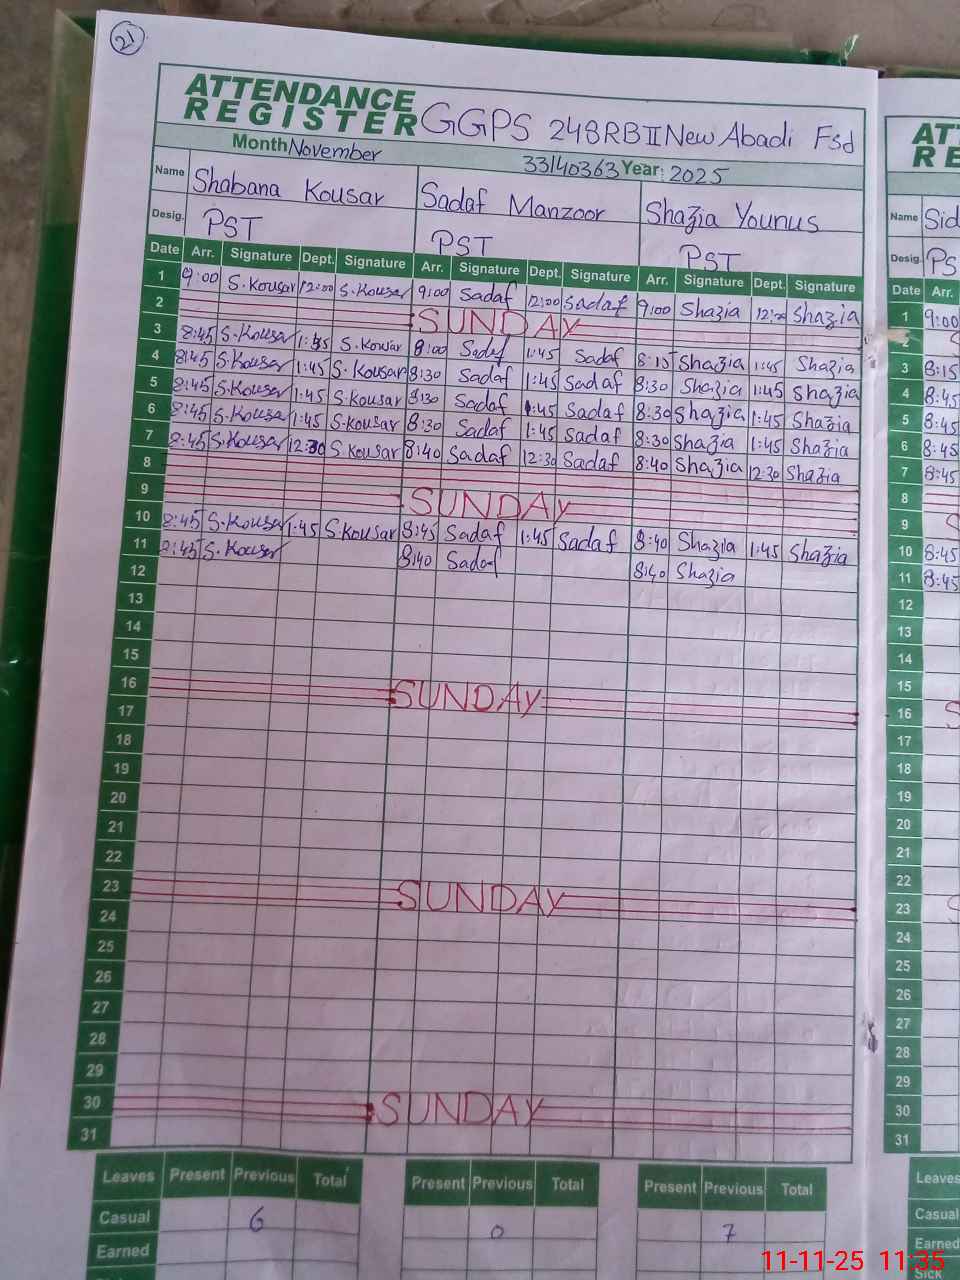 21
ATTENDANCE
REGISTER GGPS 248RB II New Abadi Fsd
Month November 33140363 Year: 2025
Name Shabana Kousar Sadaf Manzoor Shazia Younus
Desig. PST PST PST
Date Arr. Signature Dept. Signature Arr. Signature Dept. Signature Arr. Signature Dept. Signature
1 9:00 S.Kousar 12:00 S.Kousar 9:00 Sadaf 12:00 Sadaf 9:00 Shazia Shazia
2 SUNDAY
3 8:45 S.Kousar S.Kousar 8:00 Sadaf 1:45 Sadaf 8:15 Shazia 1:45 Shazia
4 8:45 S.Kousar 1:45 S.Kousar 8:30 Sadaf 1:45 Sadaf 8:30 Shazia 1:45 Shazia
5 8:45 S.Kousar 1:45 S.Kousar 8:30 Sadaf 1:45 Sadaf 8:30 Shazia 1:45 Shazia
6 8:45 S.Kousar 1:45 S.Kousar 8:30 Sadaf 1:45 Sadaf 8:30 Shazia 1:45 Shazia
7 8:45 S.Kousar 12:30 S.Kousar 8:40 Sadaf 12:30 Sadaf 8:40 Shazia 12:30 Shazia
8
9 SUNDAY
10 8:45 S.Kousar 1:45 S.Kousar 8:45 Sadaf 1:45 Sadaf 8:40 Shazia 1:45 Shazia
11 8:45 S.Kousar 8:40 Sadaf 8:40 Shazia
12
13
14
15
16 SUNDAY
17
18
19
20
21
22
23 SUNDAY
24
25
26
27
28
29
30 SUNDAY
31
Leaves Present Previous Total Present Previous Total Present Previous Total
Casual 6 0 7
Earned
AT
RE
Name Sid
Desig. PS
Date Arr.
1 9:00
2 S
3 8:15
4 8:45
5 8:45
6 8:45
7 8:45
8
9 S
10 8:45
11 8:45
12
13
14
15
16 S
17
18
19
20
21
22
23 S
24
25
26
27
28
29
30
31
Leaves
Casual
Earned
Sick
11-11-25 11:35